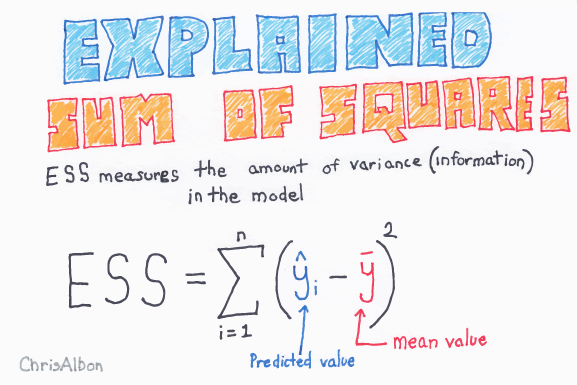 EXPLAINED
SUM OF SQUARES
ESS measures the amount of variance (information)
in the model
ESS = ∑ᵢ₌₁ⁿ (ŷᵢ − ȳ)²
Predicted value
mean value
ChrisAlbon